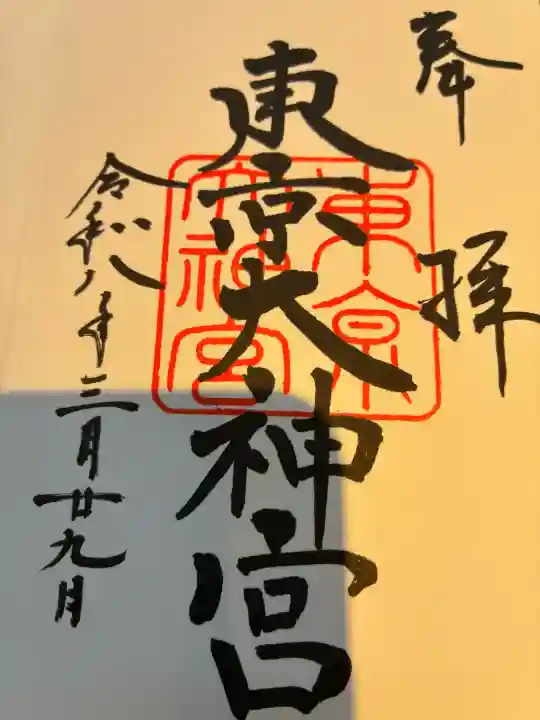 奉拝
東京大神宮
東京大神宮
令和八年三月廿九日